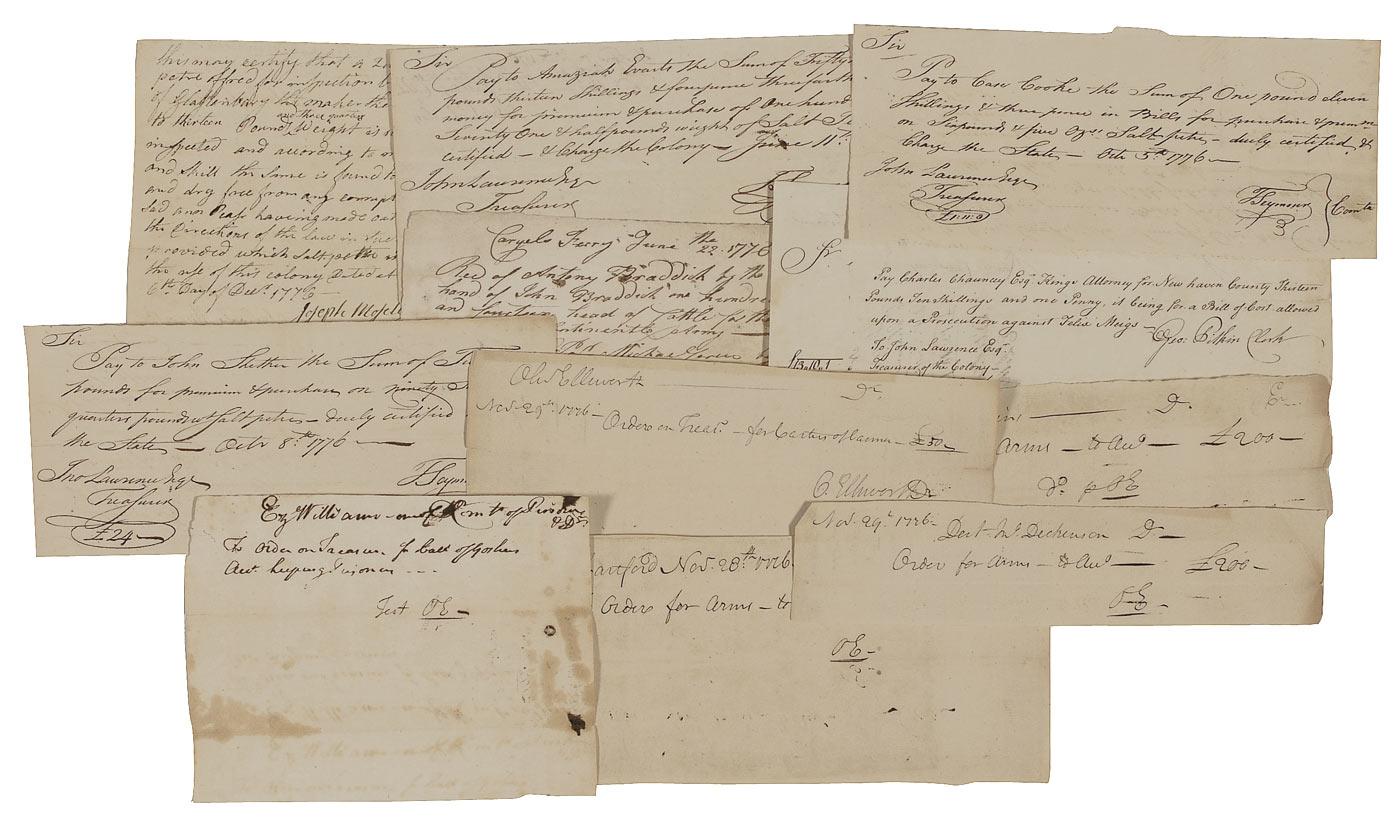 this may certify that a
petre offred for inspection
of Glastonbury the maker
and three quarters
to thirteen Pound Weight is
inspected and according to
and skill the same is found
and dry free from any
the Directions of the law in
provided which Salt petre
the use of this colony Dated at
6th Day of Decr. 1776
Joseph
Sir
Pay to Amaziah Evarts the Sum of Fifty
pounds thirteen Shillings & fourpence three
money for premium & purchase of One hund
Seventy One & half pounds weight of Salt
certified — & Charge the Colony — June 11th
John Lawrence Esqr
Treasurer
Sir
Pay to Case Cooke the Sum of One pound eleven
Shillings & three pence in Bills for purchase &
on Six pounds & five Ozs. Salt petre, — duely certified, &
Charge the State — Octr 5th 1776 —
John Lawrence Esqr
Treasurer
TSeymour
Comtee
Caryels Ferry June the 22 1776
Recd of Antony Braddick by the
hand of John Braddick one hundre
an fourteen head of Cattle for the
ntinentle
Sr.
Pay Charles Chauncey Esqr. Kings Attorney for New haven County Thirteen
Pounds Ten Shillings and one Penny, is being for a Bill of Cost allowed
upon a Prosecution against Felix Meigs —
Geo: Pitkin Clerk
To John Lawrence Esqr.
Treasurer of the Colony —
Sir
Pay to John Shether the Sum of
pounds for premium & purchase on ninety
quarters pounds wt Salt petre — duely certified
the State — Octr 8th 1776 —
Jno Lawrence Esqr
Treasurer
TSeym
£24 —
Olivr Ellsworth Dr.
Nov. 29th 1776 —
Orders on Treasr. — for — £50 —
O. Ellsworth Dr
D. Cr.
Arms — to Acct — £200 —
Dr. p OE
Nov. 29th 1776 —
Dickenson D —
Order for Arms — to Acct — £200 —
OE —
artford Nov. 28th 1776
Order for Arms — to
OE —
Ez Williams one of Comtee of Prisoners
Dr.
To Order on Treasurer for ball of Goshen
Acct. keeping Prisoners - - -
Test OE —